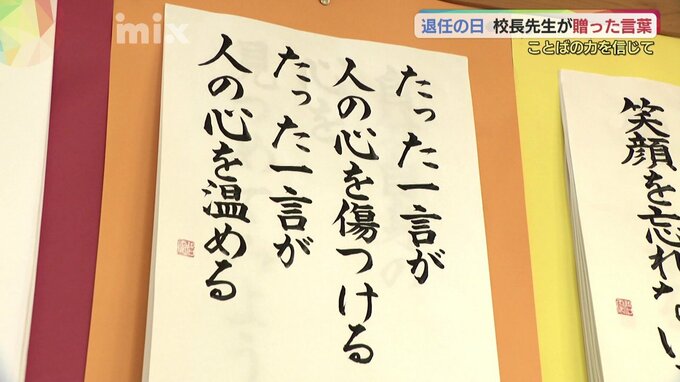 mix
退任の日 校長先生が贈った言葉
ことばの力を信じて
たった一言が
人の心を傷つける
たった一言が
人の心を温める
笑顔を忘れない